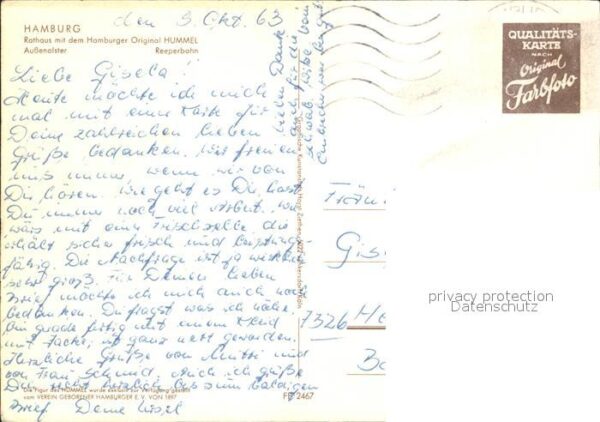 den 3. Okt. 63
HAMBURG
Rathaus mit dem Hamburger Original HUMMEL
Außenalster Reeperbahn
QUALITÄTS-
KARTE
NACH
Original
Farbfoto
Liebe Gisela!
Heute möchte ich mich
mal mit einer Karte für
Deine zahlreichen lieben
Grüße bedanken. Wir freuen
uns immer wenn wir von
Dir hören. Wie geht es Dir, hast
Du immer noch viel Arbeit. Wie
wärs mit einer Frischzelle, die
erhält sicher frisch und leistungs-
fähig. Die Nachfrage ist ja wirklich
sehr groß. Für Deinen lieben
Brief möchte ich mich auch noch
bedanken. Du fragst was ich nähe,
bin grade fertig mit einem Kleid
mit Jacke, ist ganz nett geworden.
Herzliche Grüße von Mutti und
von Frau Schmid. Auch ich grüße
Dich recht herzlich bis zum baldigen
Brief Deine
Vielen Dank
auch für die
Die Figur des HUMMEL wurde
vom VEREIN GEBORENER HAMBURGER E. V. VON 1897
2467
Fräu
Gis
7326 He
privacy protection
Datenschutz